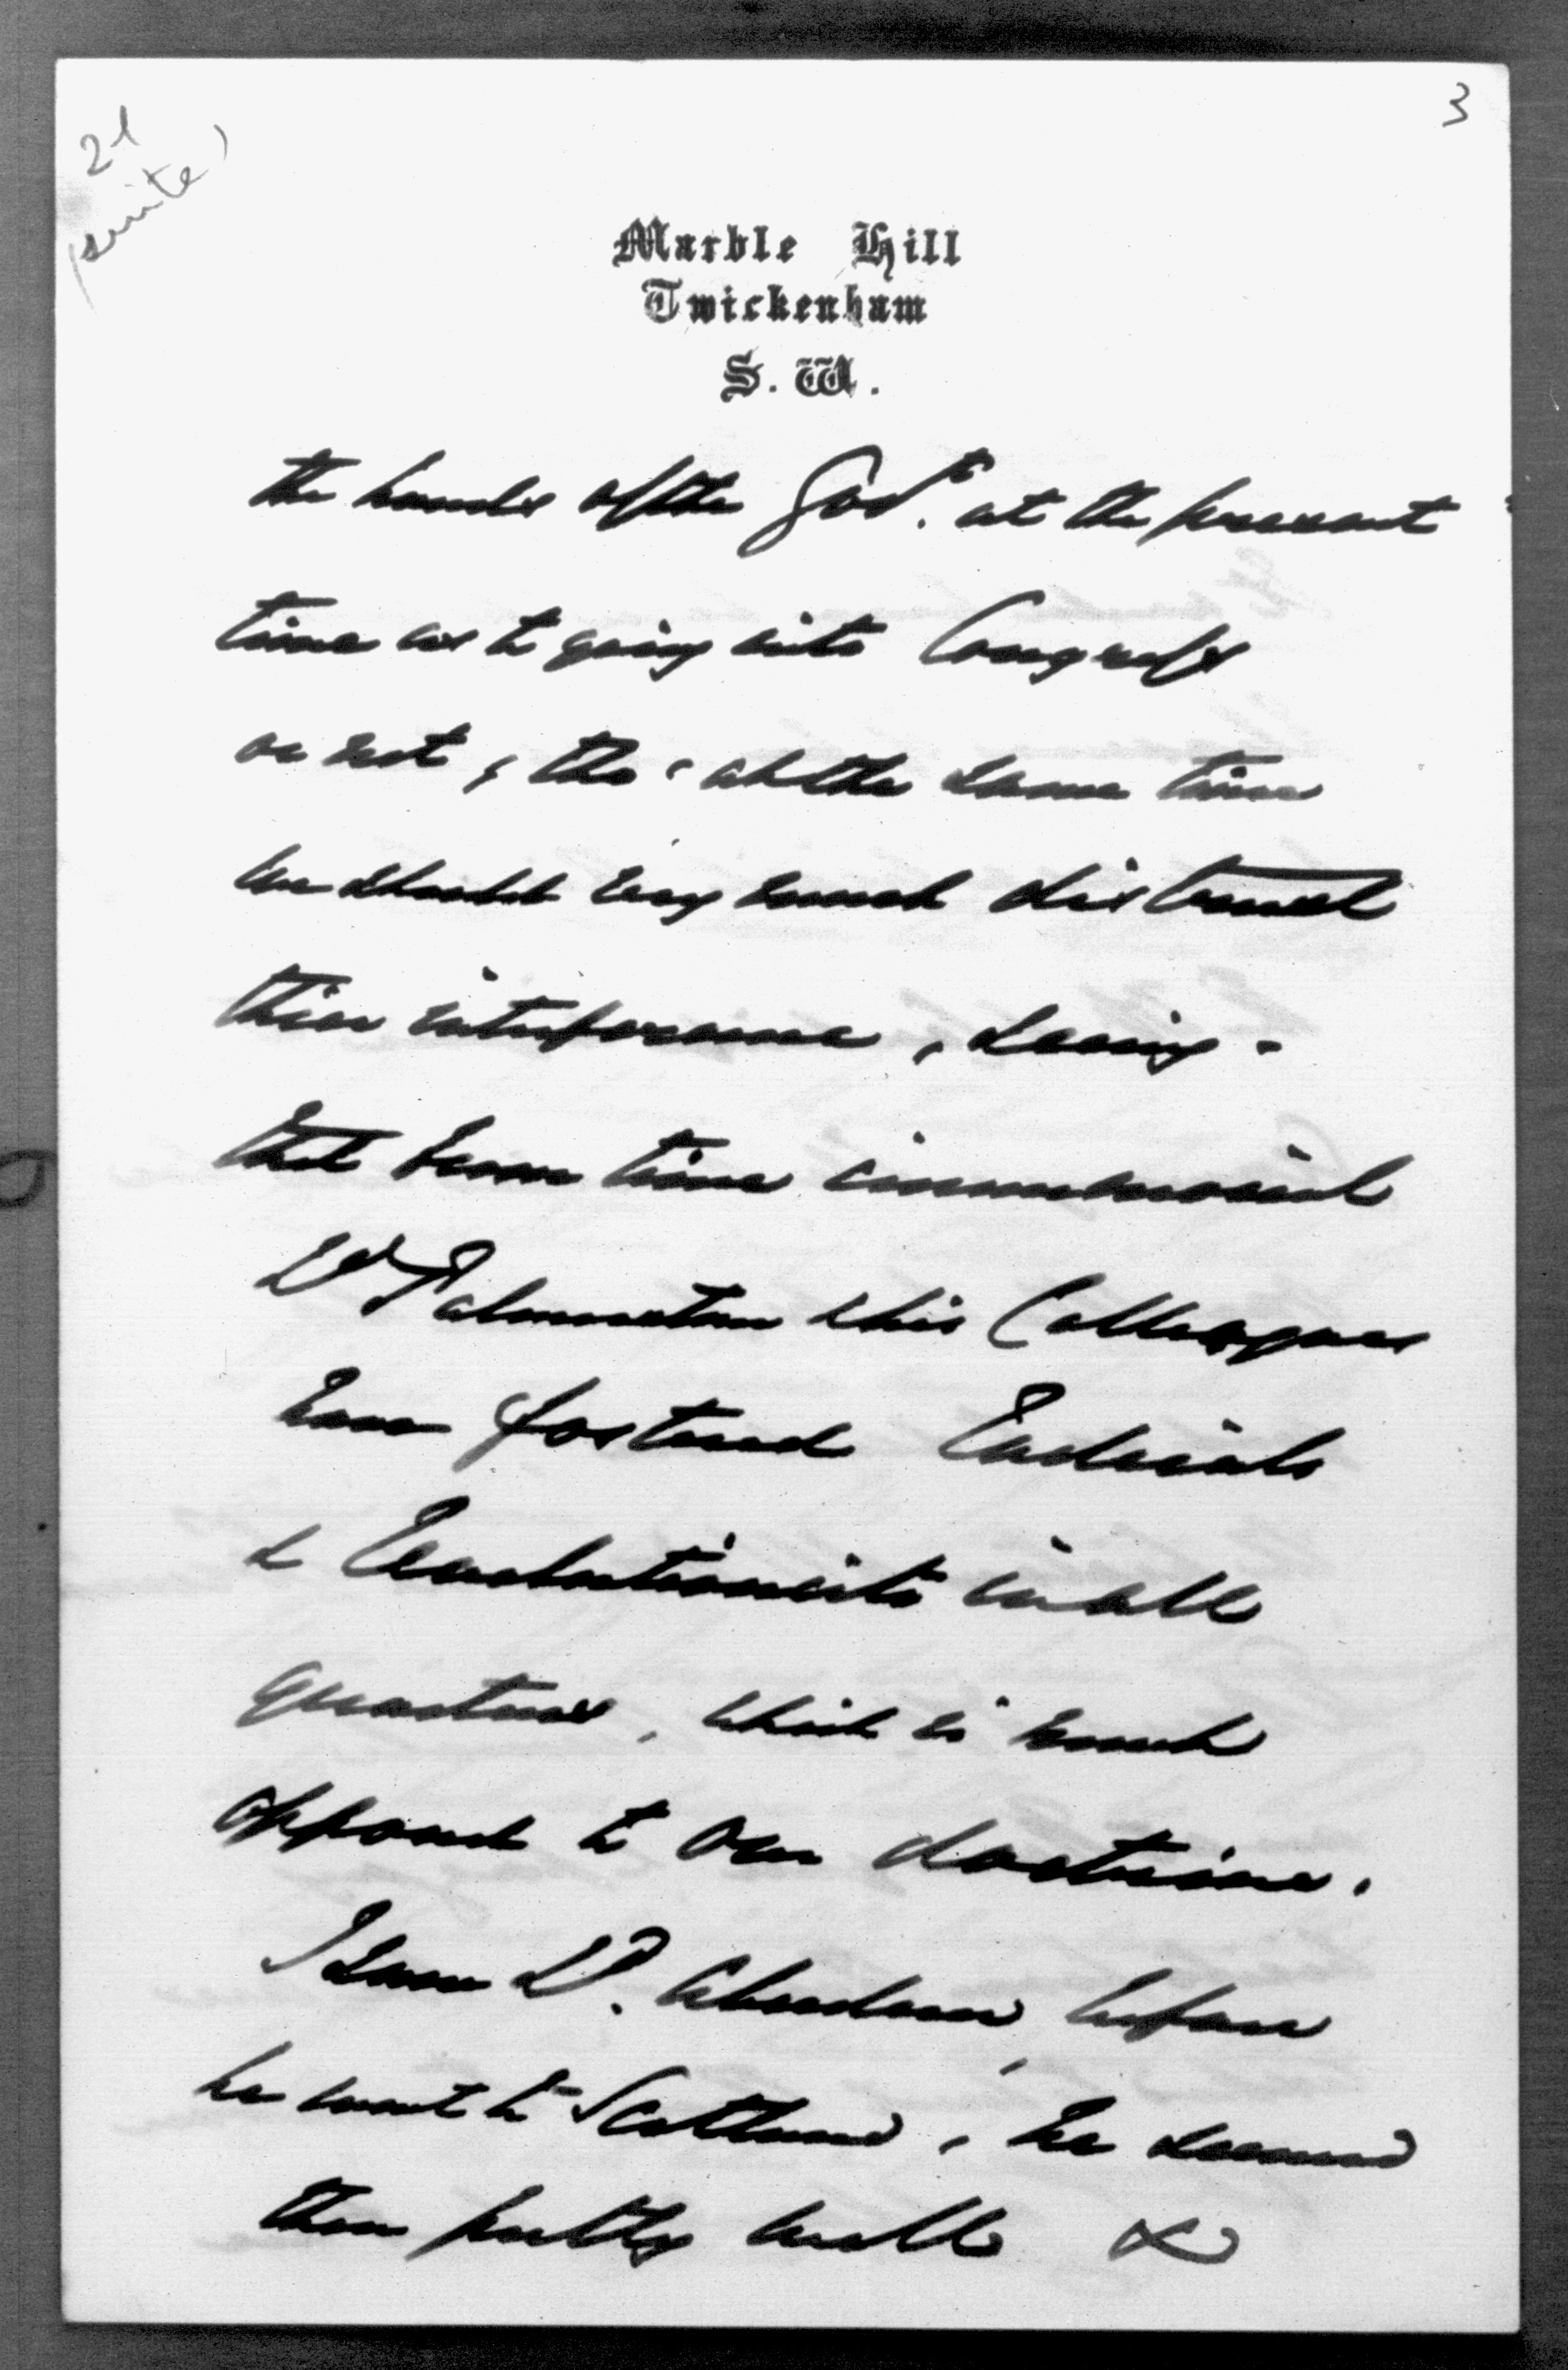 21
(suite)
3
Marble Hill
Twickenham
S. W.
the hands of the Govt. at the present
time as to going into Congress
or not, tho' at the same time
we should very much distrust
their interference, seeing -
that from time immemorial
Ld Palmerston & his Colleagues
have fostered Radicals
& Revolutionists in all
quarters, which is much
opposed to our doctrine.
I saw Ld. Aberdeen, before
he went to Scotland, he seemed
then pretty well &